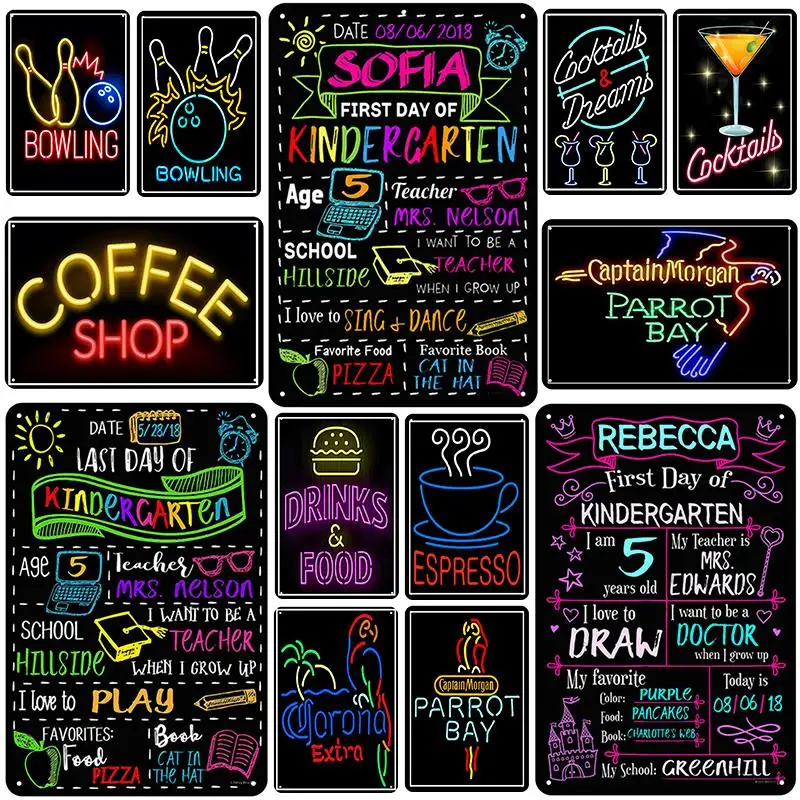 BOWLING
BOWLING
DATE 08/06/2018
SOFIA
FIRST DAY OF
KINDERGARTEN
Age 5
Teacher
MRS. NELSON
SCHOOL
HILLSIDE
I WANT TO BE A
TEACHER
WHEN I GROW UP
I love to SING & DANCE
Favorite Food
PIZZA
Favorite Book
CAT IN
THE HAT
Cocktails
&
Dreams
Cocktails
COFFEE
SHOP
Captain Morgan
PARROT
BAY
DATE 5/28/18
LAST DAY OF
KINDERGARTEN
Age 5
Teacher
MRS. NELSON
SCHOOL
HILLSIDE
I WANT TO BE A
TEACHER
WHEN I GROW UP
I love to PLAY
FAVORITES:
Food
PIZZA
Book
CAT IN
THE HAT
DRINKS
&
FOOD
ESPRESSO
Corona
Extra
Captain Morgan
PARROT
BAY
REBECCA
First Day of
KINDERGARTEN
I am
5
years old
My Teacher is
MRS.
EDWARDS
I love to
DRAW
I want to be a
DOCTOR
when I grow up
My favorite
Color: PURPLE
Food: PANCAKES
Book: CHARLOTTE'S WEB
Today is
08/06/18
My School: GREENHILL